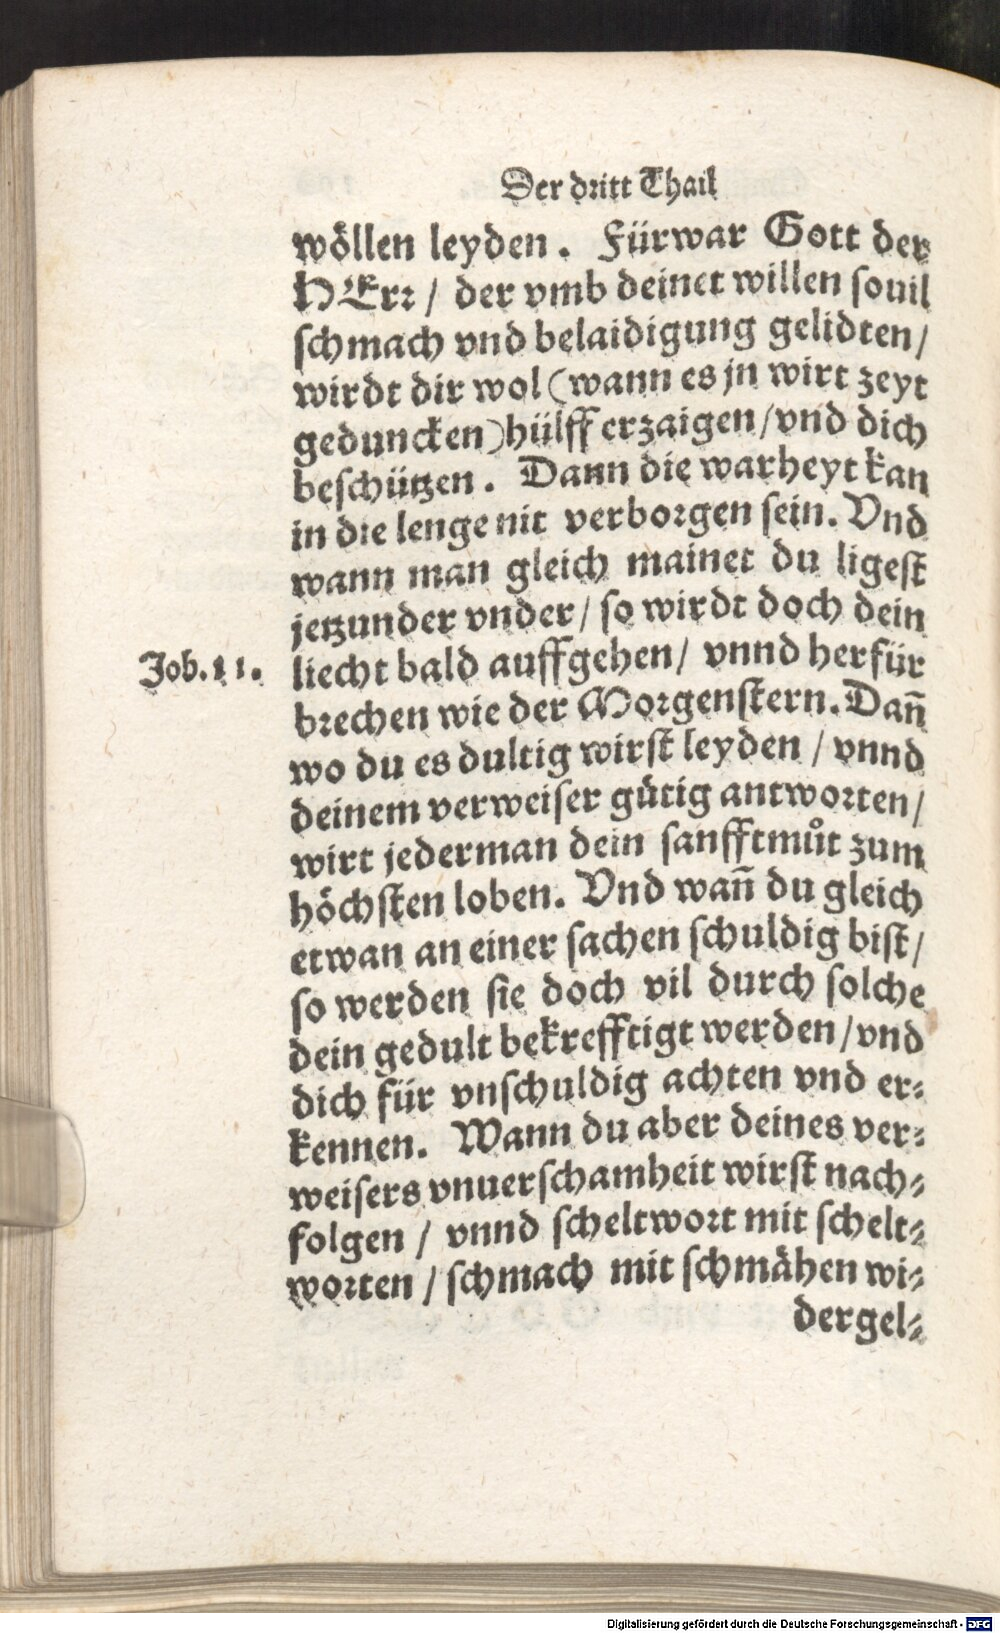 Der dritt Thail
wöllen leyden. Fürwar Gott der
HErr / der vmb deinet willen souil
schmach vnd belaidigung gelidten/
wirdt dir wol (wann es jn wirt zeyt
geduncken) hülff erzaigen/vnd dich
beschützen. Dann die warheyt kan
in die lenge nit verborgen sein. Vnd
wann man gleich mainet du ligest
jetzunder vnder/ so wirdt doch dein
Job. 11. liecht bald auffgehen/ vnnd herfür
brechen wie der Morgenstern. Dañ
wo du es dultig wirst leyden / vnnd
deinem verweiser gütig antworten/
wirt jederman dein sanfftmůt zum
höchsten loben. Vnd wañ du gleich
etwan an einer sachen schuldig bist/
so werden sie doch vil durch solche
dein gedult bekrefftigt werden/vnd
dich für vnschuldig achten vnd er⸗
kennen. Wann du aber deines ver⸗
weisers vnuerschamheit wirst nach⸗
folgen / vnnd scheltwort mit schelt⸗
worten / schmach mit schmähen wi⸗
dergel⸗
Digitalisierung gefördert durch die Deutsche Forschungsgemeinschaft - DFG